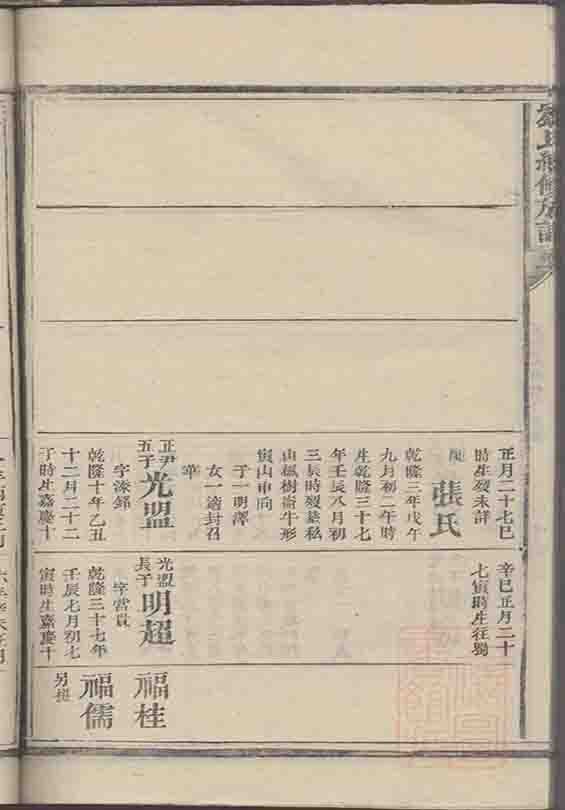 正月二十七巳
時生歿未詳
張氏
乾隆三年戊午
九月初二午時
生乾隆三十七
年壬辰八月初
三辰時歿墓私
山楓樹崙牛形
寅山申向
子一明澤
女一適封召
華
正尹
五子
光盟
字漆銘
乾隆十年乙丑
十二月二十二
丁時生嘉慶十
辛巳正月二十
七寅時生往蜀
光盟
長子
明超
字當貫
乾隆三十七年
壬辰七月初七
寅時生嘉慶十
福桂
福儒